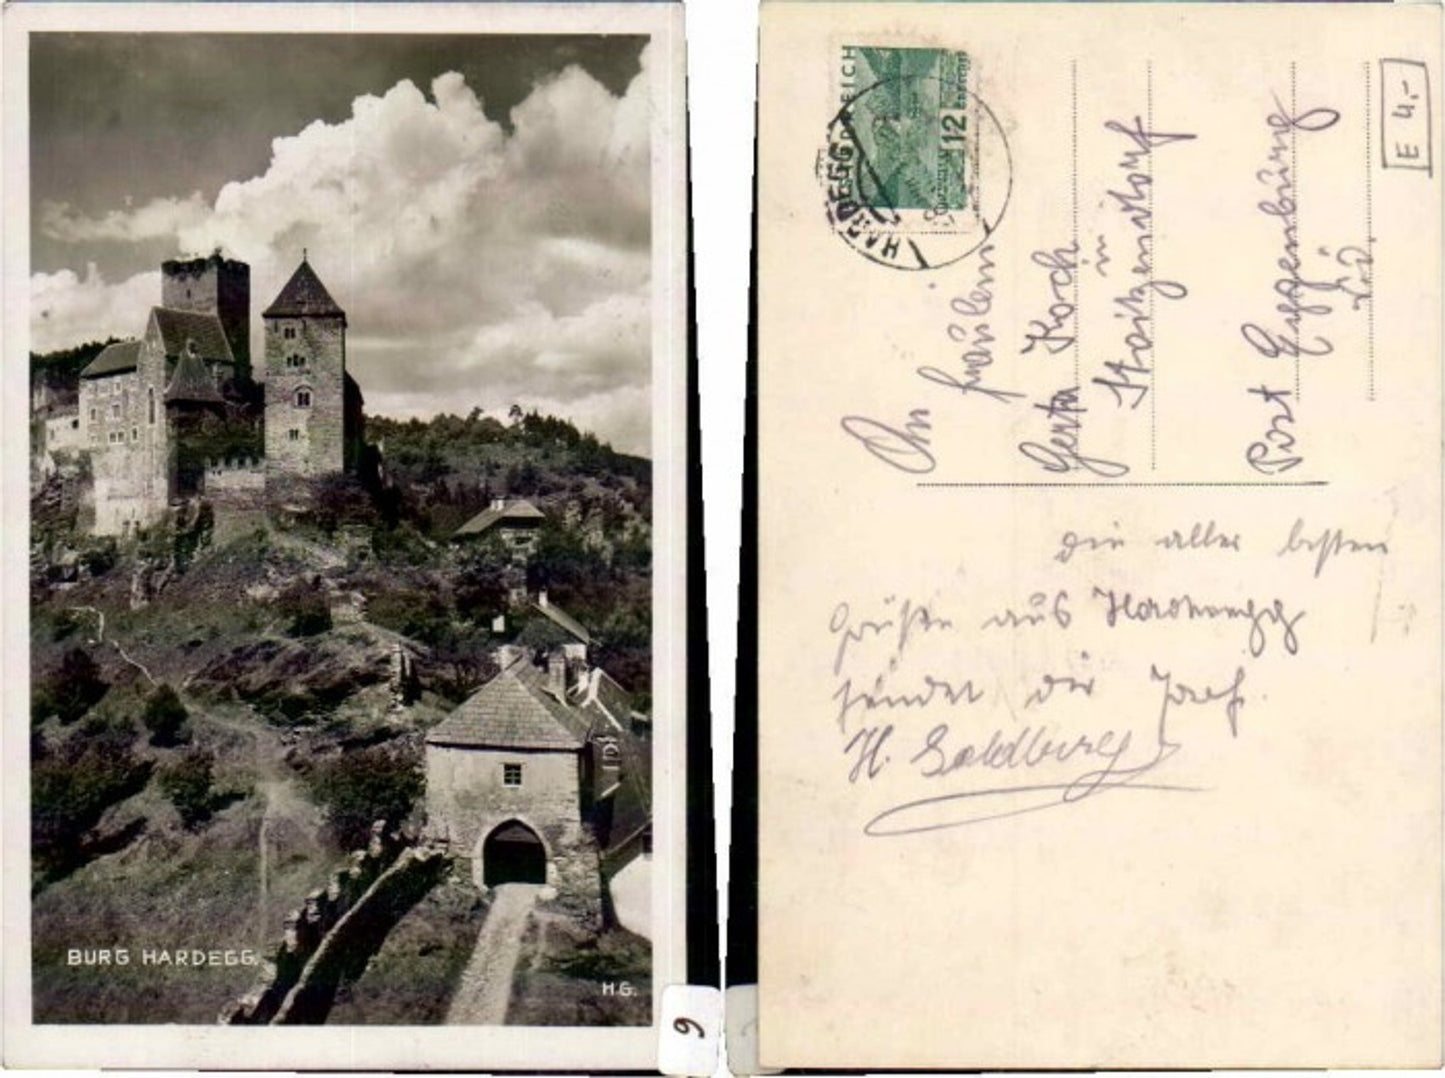 BURG HARDEGG.
H.G.
9
ÖSTERREICH
12
GROSCHEN
HARDEGG
E 4.-
An
Fräulein
Gerta Koch
in
Staitzendorf
Post Eggenburg
N.Ö.
die aller besten
Grüße aus Hardegg
sendet dir
H. Goldburg